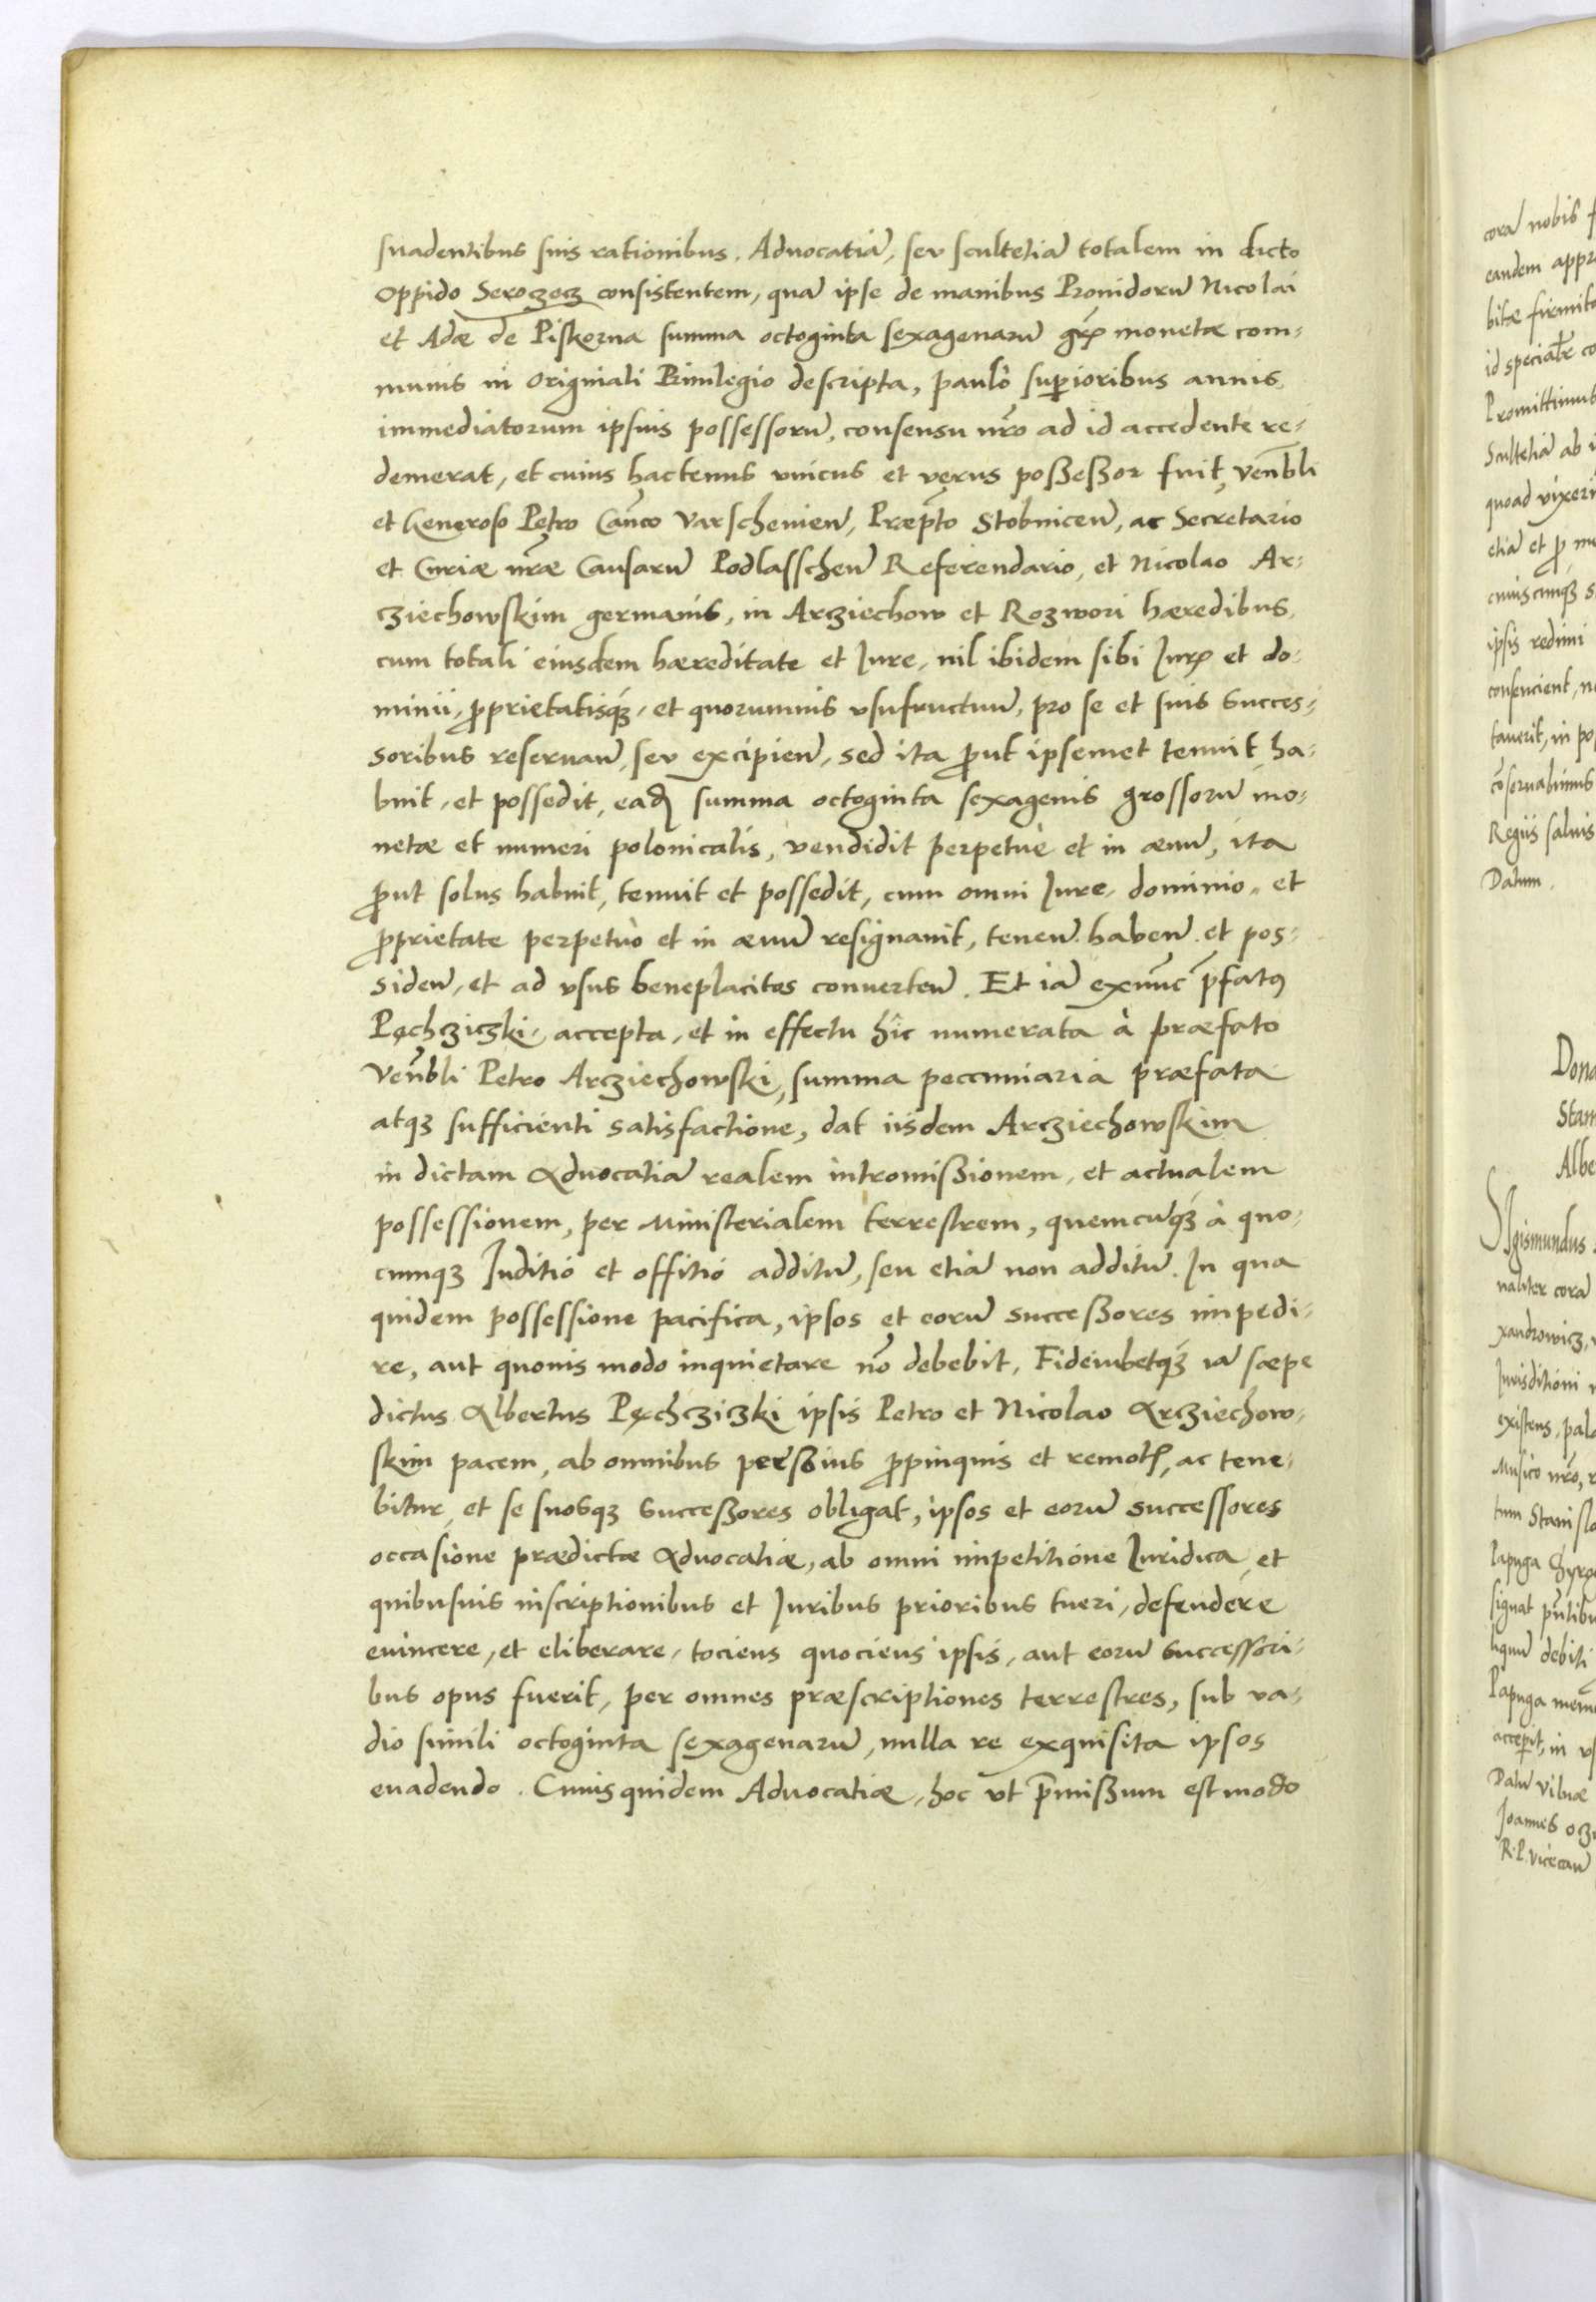 suadentibus suis rationibus. Aduocatiā, seu scultetiā totalem in dicto
Oppido Seroczecz consistentem, quā ipse de manibus Prouidorū Nicolai
et Adæ de Piskorna summa octoginta sexagenarū grꝭ monetæ com-
munis in Originali Priuilegio descripta, paulò superioribus annis
immediatorum ipsius possessorū, consensu nr̄o ad id accedente re-
demerat, et cuius hactenus vnicus et verus poßeßor fuit, Venēbli
et Generoso Petro Can̄co Varschenien̄, Præpt̄o Stobnicen̄, ac Secretario
et Curiæ nr̄æ Causarū Podlasschen̄ Referendario, et Nicolao Ar-
cziechowskim germanis, in Arcziechow et Rozwori hæredibus
cum totali eiusdem hæreditate et Iure, nil ibidem sibi Iurꝭ et do-
minii, ꝓprietatisqꝫ, et quorumuis vsufructuum, pro se et suis Succes-
soribus reseruan̄, seu excipien̄, sed ita ꝓut ipsemet tenuit ha-
buit, et possedit, eadꝫ summa octoginta sexagenis grossorū mo-
netæ et numeri polonicalis, vendidit perpetuè et in æuū, ita
ꝓut solus habuit, tenuit et possedit, cum omni Iure, dominio, et
ꝓprietate perpetuò et in æuū resignauit, tenen̄. haben̄. et pos-
siden̄, et ad vsus beneplacitos conuerten̄. Et iā exnūc p̄fatꝰ
Pęchcziczki, accepta, et in effectu hîc numerata à præfato
Venēbli Petro Arcziechowski, summa peccuniaria præfata
atqꝫ sufficienti satisfactione, dat iisdem Arcziechowskim
in dictam Aduocatiā realem intromißionem, et actualem
possessionem, per Ministerialem terrestrem, quemcūqꝫ à quo-
cunqꝫ Iuditio et offitio additū, seu etiā non additū. In qua
quidem possessione pacifica, ipsos et eorū succeßores impedi-
re, aut quouis modo inquietare nō debebit, Fideiubetqꝫ iā sæpe
dictus Albertus Pęchcziczki ipsis Petro et Nicolao Arcziechow-
skim pacem, ab omnibus perßonis ꝓpinquis et remotꝭ, ac tene-
bitur, et se suosqꝫ Succeßores obligat, ipsos et eorū successores
occasione prædictæ Aduocatiæ, ab omni impetitione Iuridica et
quibusuis inscriptionibus et Iuribus prioribus tueri, defendere
euincere, et eliberare, tociens quociens ipsis, aut eorū Successori-
bus opus fuerit, per omnes præscriptiones terrestres, sub va-
dio simili octoginta sexagenarū, nulla re exquisita ipsos
euadendo. Cuius quidem Aduocatiæ, hoc vt p̄mißum est modo
corā nobis
eandem
id
Promittimus
Scultetiā ab
quoad
etiā et ꝓ
cuiuscunqꝫ
ipsis redimi
consencient,
tauerit, in
cōseruabimus
Regiis saluis
Datum.
Sigismundus
naliter corā
Iurisditioni
existens,
Musico nr̄o,
Papuga
signat
debiti
Papuga
in
Datū Vilnæ
Ioannes
R. P. Vicecan̄